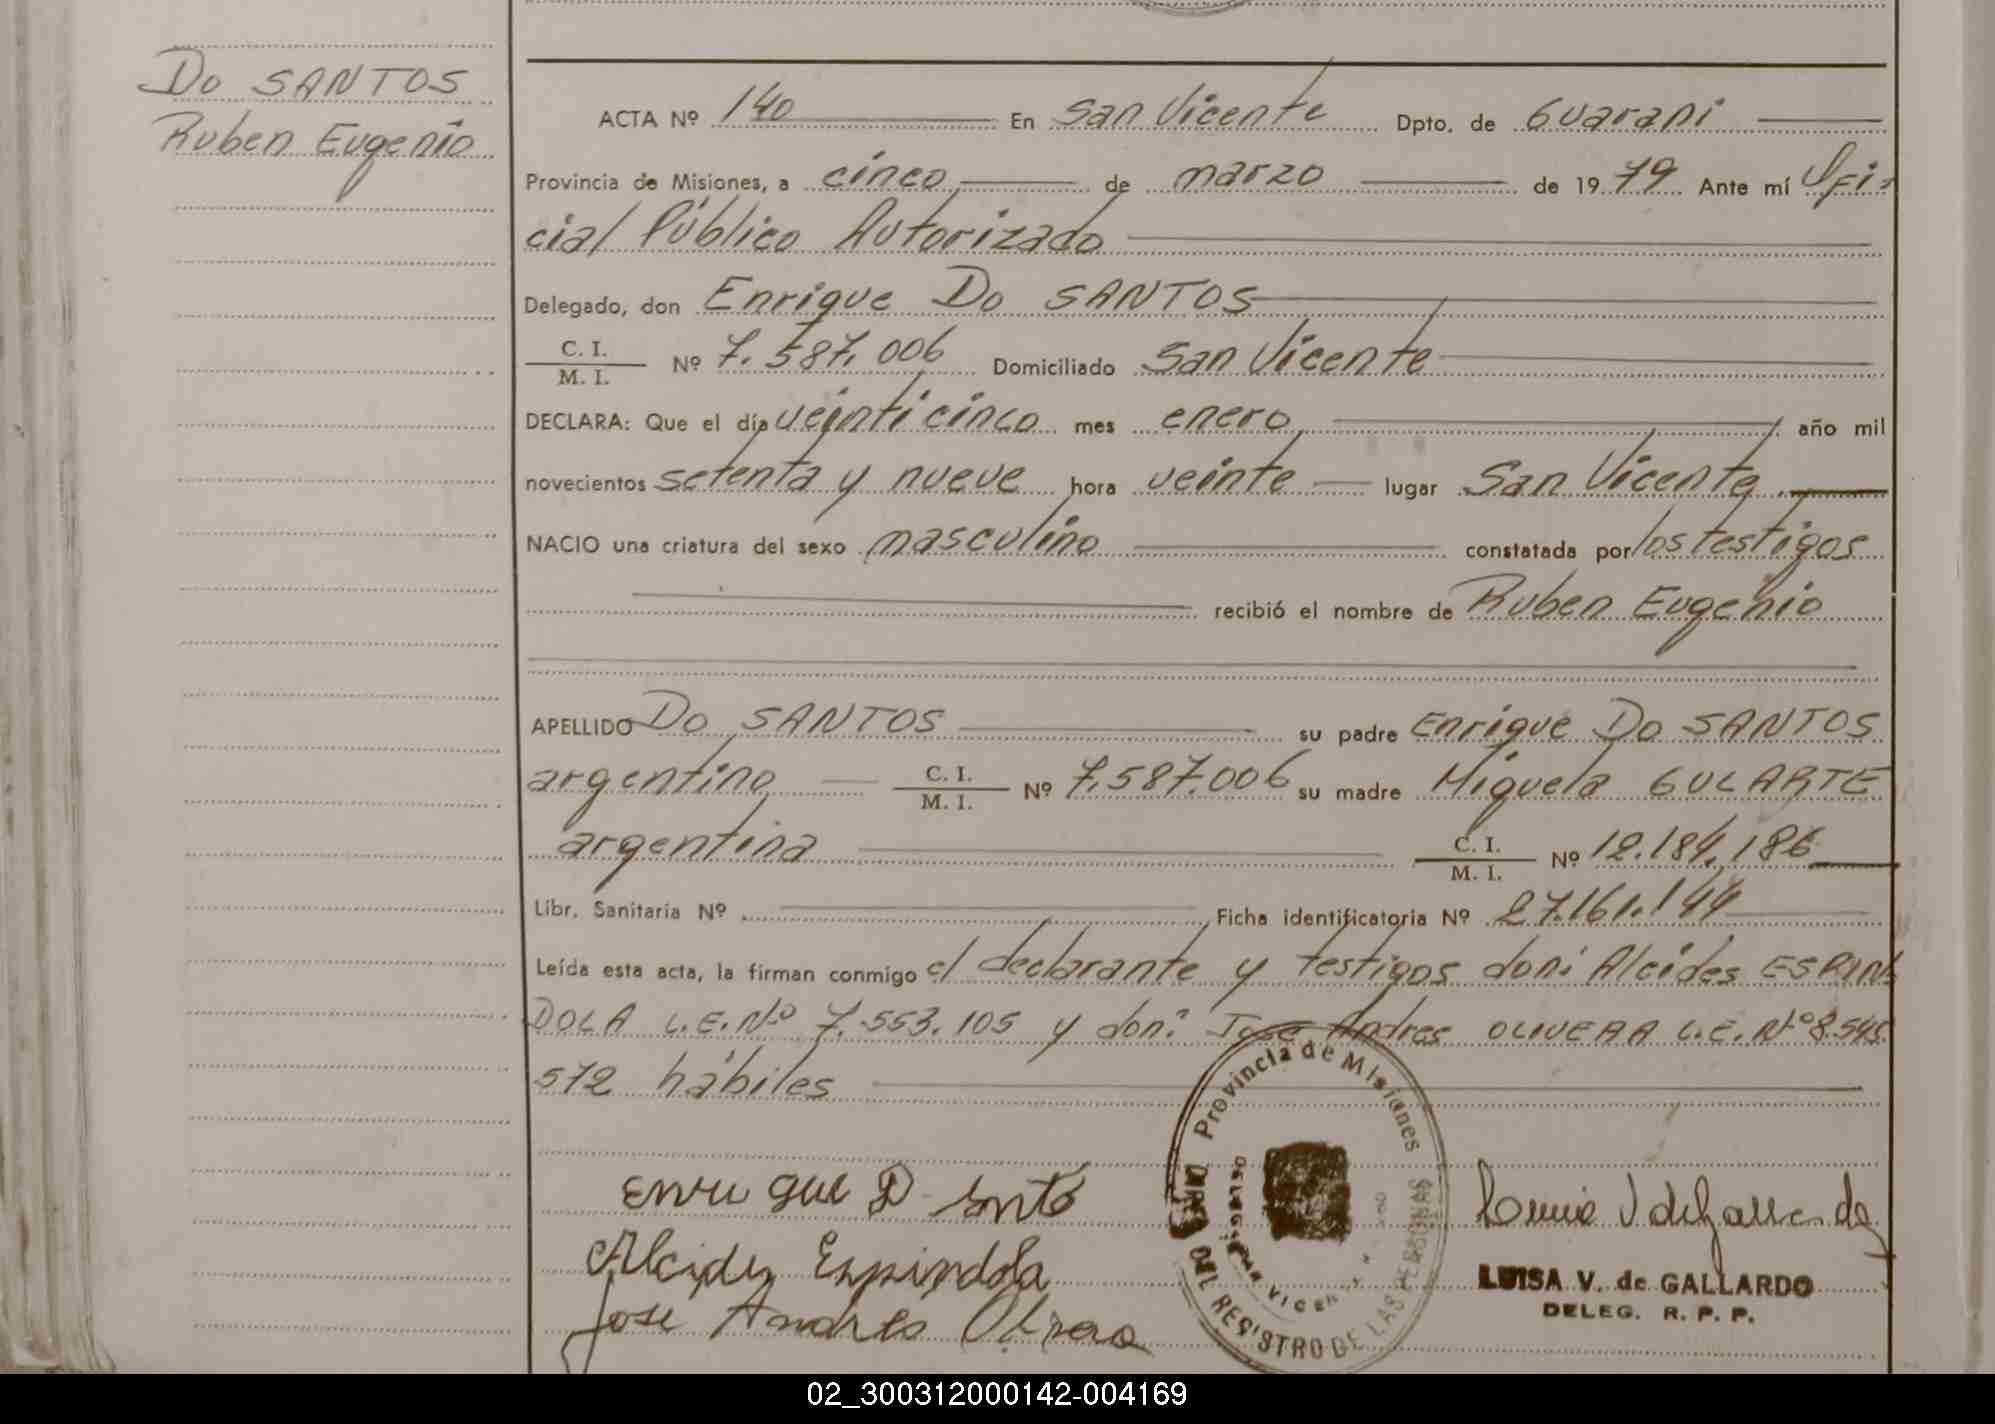 Do SANTOS
Ruben Eugenio
ACTA Nº 140 En San Vicente Dpto. de Guarani
Provincia de Misiones, a cinco de marzo de 1979 Ante mí Ofi-
cial Público Autorizado
Delegado, don Enrique Do SANTOS
C. I.
M. I. Nº 7.587.006 Domiciliado San Vicente
DECLARA: Que el día veinticinco mes enero año mil
novecientos setenta y nueve hora veinte lugar San Vicente
NACIO una criatura del sexo masculino constatada por los testigos
recibió el nombre de Ruben Eugenio
APELLIDO Do SANTOS su padre Enrique Do SANTOS
argentino C. I.
M. I. Nº 7.587.006 su madre Miguela GULARTE
argentina C. I.
M. I. Nº 12.184.186
Libr. Sanitaria Nº Ficha identificatoria Nº 27.161.144
Leída esta acta, la firman conmigo el declarante y testigos don: Alcides ESPIN
DOLA L.E.Nº 7.553.105 y don: Jose Andres OLIVERA L.E.Nº 8.545.
572 hábiles
Provincia de Misiones
DEL REGISTRO DE LAS PERSONAS
Enrique D Santo
Alcides Espindola
Jose Andres
LUISA V. de GALLARDO
DELEG. R. P. P.
02_300312000142-004169